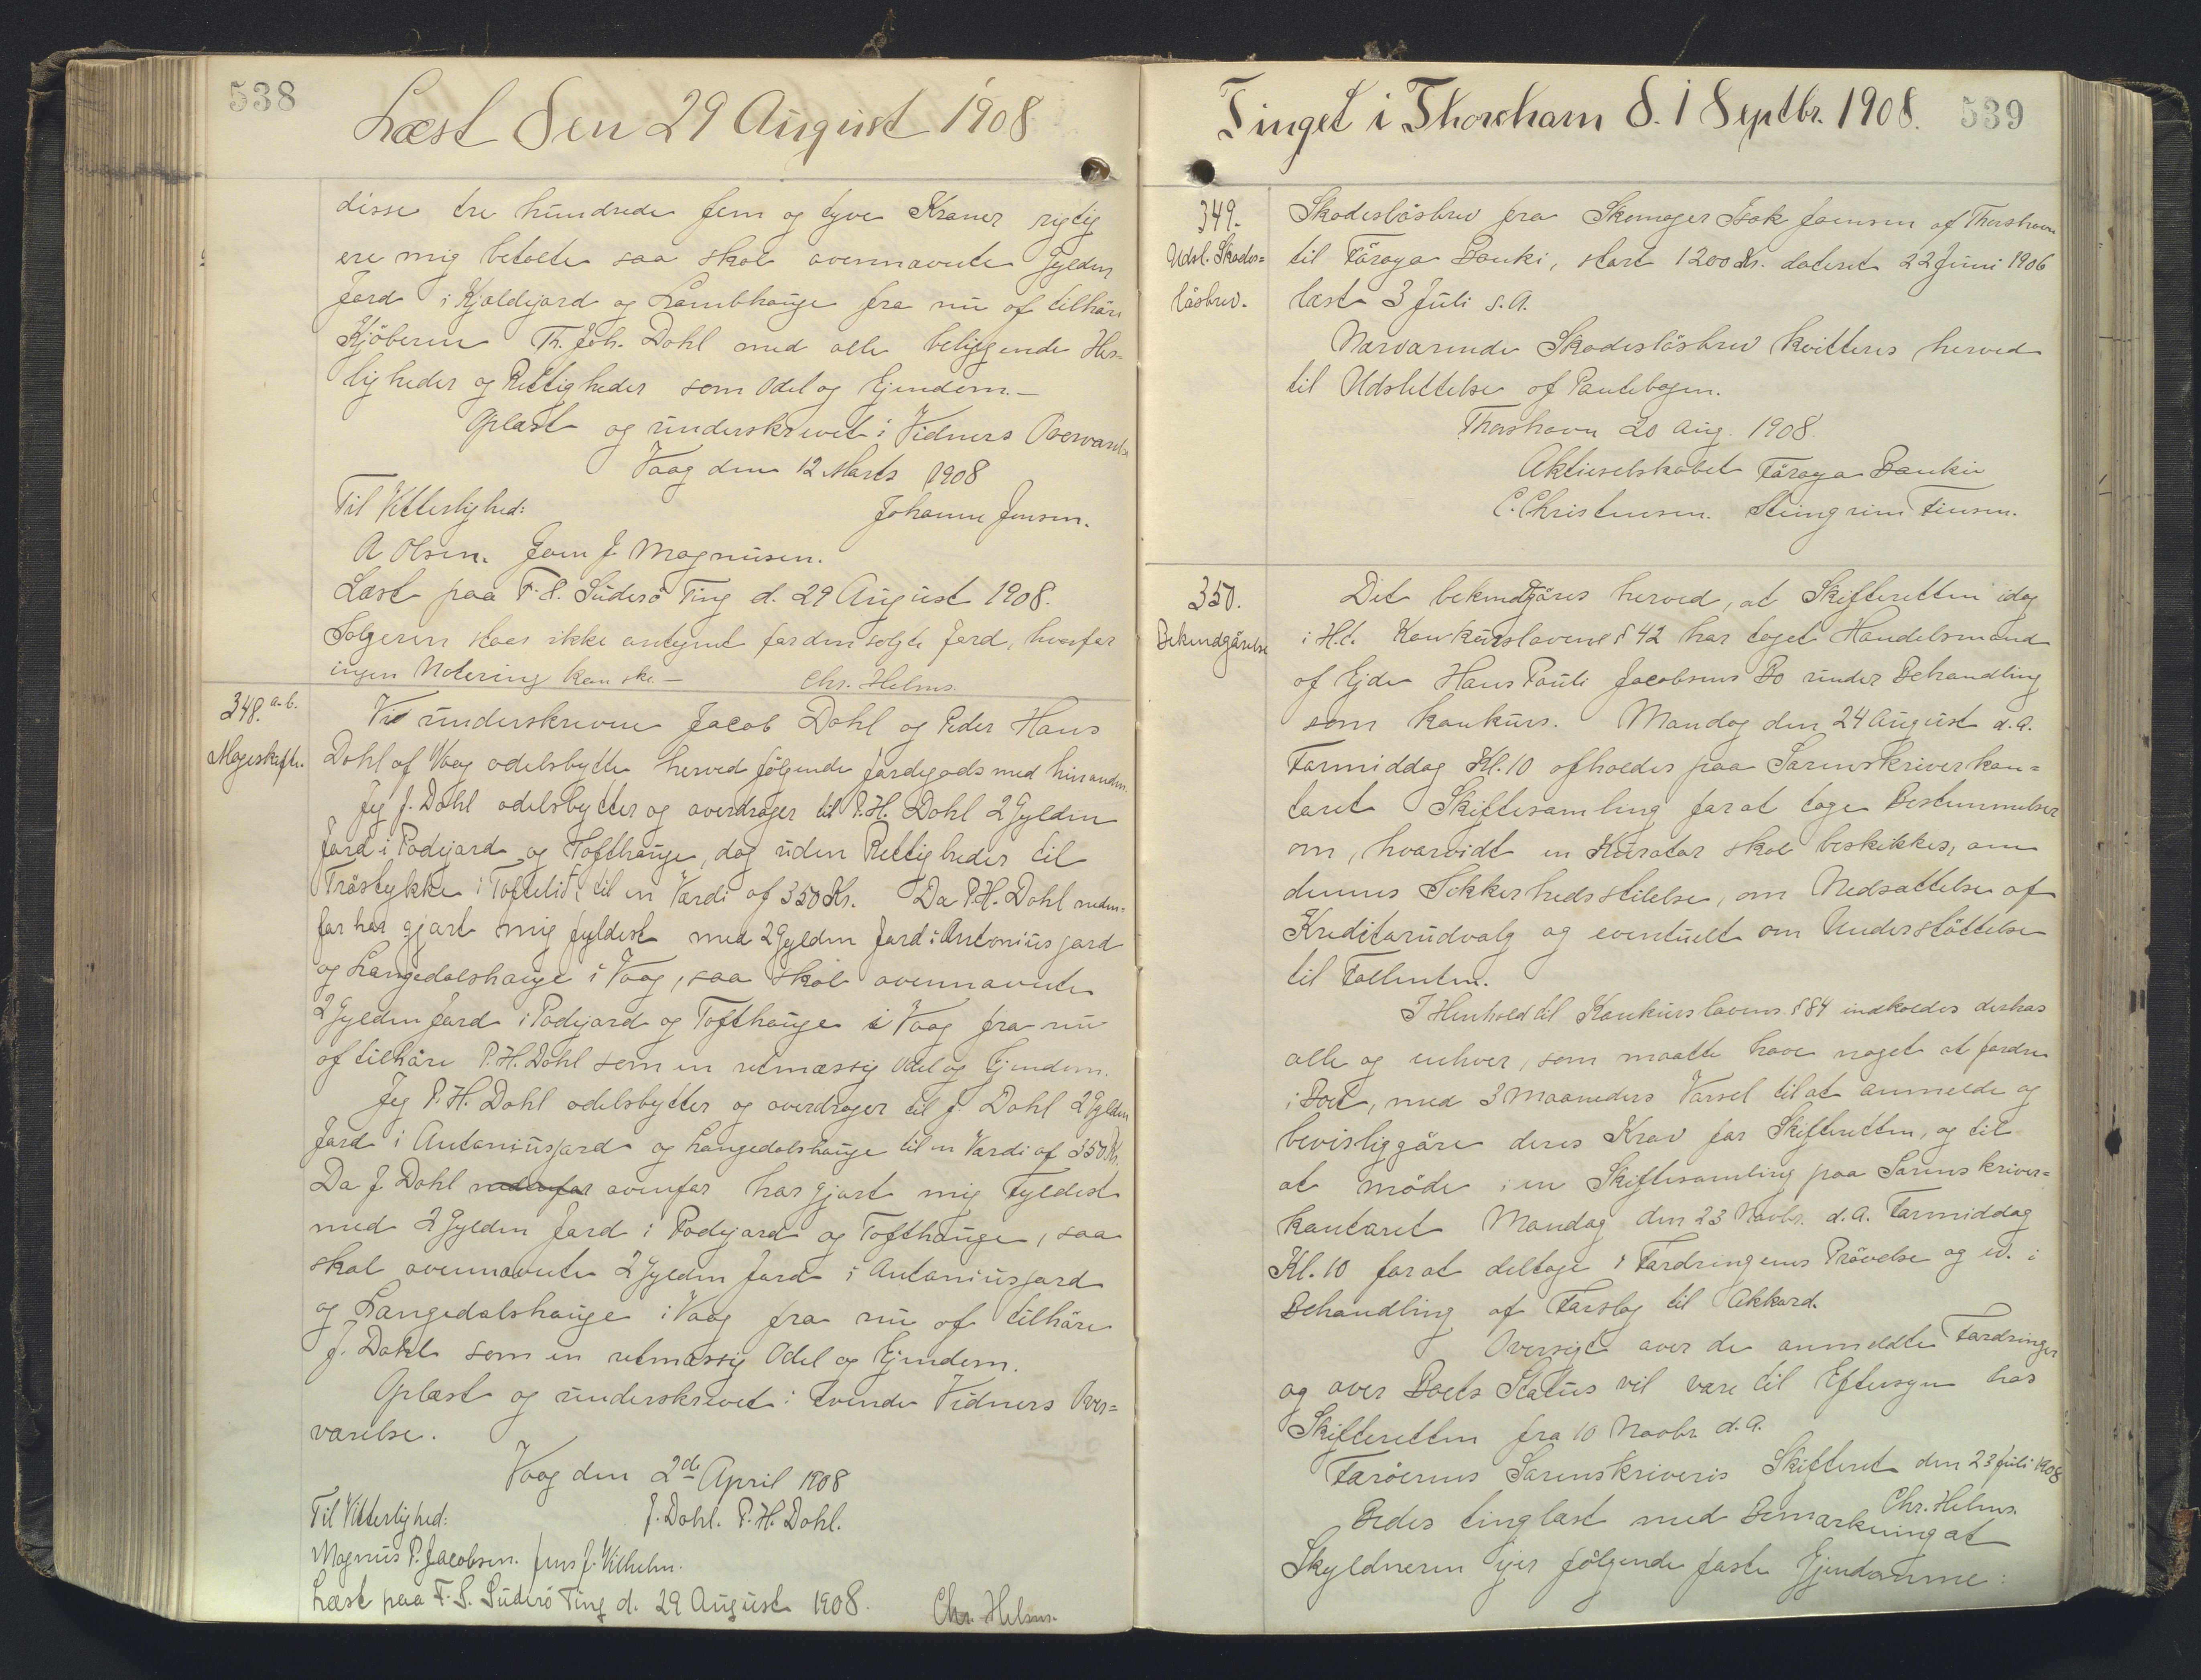 538
Læst den 29 August 1908
disse tre hundrede fem og tyve Kroner rigtig
ere mig betalte saa skal ovennævnte Gylden
Jord i Kjaldegard og Lambhauge fra nu af tilhöre
Kjöberen Th. Joh. Dahl med alle beliggende Her-
ligheder og Rettigheder som Odel og Ejendom. -
Oplæst og underskrevet i Vidners Overværelse
Vaag den 12 Marts 1908
Til Vitterlighed: Johanne Jensen.
A Olsen. Joen J. Magnusen.
Læst paa F. S. Suderö Ting d. 29 August 1908.
Sælgeren staar ikke antegnet for den solgte Jord, hvorfor
ingen Notering kan ske. - Chr. Helms.
348. a-b.
Mageskifte.
Vi underskrevne Jacob Dahl og Peder Hans
Dahl af Vaag odelsbytte herved følgende Jordegods med hinanden.
Jeg J. Dahl odelsbytter og overdrager til P. H. Dahl 2 Gylden
Jord i Padegard og Tofthauge, dog uden Rettigheder til
Tröstykke i Toftelid, til en Værdi af 350 Kr. Da P. H. Dahl neden-
for har gjort mig fyldest med 2 Gylden Jord i Antoniusgard
og Langedalshauge i Vaag, saa skal ovennævnte
2 Gylden Jord i Padegard og Tofthauge i Vaag fra nu
af tilhöre P. H. Dahl som en retmæssig Odel og Ejendom.
Jeg P. H. Dahl odelsbytter og overdrager til J. Dahl 2 Gylden
Jord i Antoniusgard og Langedalshauge til en Værdi af 350 Kr.
Da J. Dahl nedenfor ovenfor har gjort mig Fyldest
med 2 Gylden Jord i Padegard og Tofthauge, saa
skal ovennævnte 2 Gylden Jord i Antoniusgard
og Langedalshauge i Vaag fra nu af tilhöre
J. Dahl som en retmæssig Odel og Ejendom.
Oplæst og underskrevet i tvende Vidners Over=
værelse.
Vaag den 2de April 1908
Til Vitterlighed: J. Dahl. P. H. Dahl.
Magnus P. Jacobsen. Jens J. Vilhelm.
Læst paa F. S. Suderö Ting d. 29 August 1908. Chr. Helms.
Tinget i Thorshavn d. 1 Septbr. 1908. 539
349.
Udsl. Skades=
lösbrev.
Skadeslösbrev fra Skomager Isak Joensen af Thorshavn
til Föroya Banki, stort 1200 Kr. dateret 22 Juni 1906
læst 3 Juli s. A.
Nærværende Skadeslösbrev kvitteres herved
til Udslettelse af Pantebogen.
Thorshavn 20 Aug. 1908.
Aktieselskabet Föroya Banki
C. Christensen. Steingrim Finsen.
350.
Bekendtgörelse
Det bekendtgöres herved, at Skifteretten idag
i H.t. Konkurslovens § 42 har taget Handelsmand
af Ejde Hans Pauli Jacobsens Bo under Behandling
som konkurs. Mandag den 24 August d. A.
Formiddag Kl. 10 afholdes paa Sorenskriverkon=
toret Skiftesamling for at tage Bestemmelser
om, hvorvidt en Kurator skal beskikkes, om
dennes Sikkerhedsstillelse, om Nedsættelse af
Kreditorudvalg og eventuelt om Understöttelse
til Fallenten.
I Henhold til Konkurslovens § 84 indkaldes derhos
alle og enhver, som maatte have noget at fordre
i Boet, med 3 Maaneders Varsel til at anmelde og
bevisliggöre deres Krav for Skifteretten, og til
at möde i en Skiftesamling paa Sorenskriver=
kontoret Mandag den 23 Novbr. d. A. Formiddag
Kl. 10 for at deltage i Fordringernes Prövelse og ev. i
Behandling af Forslag til Akkord.
Oversigt over de anmeldte Fordringer
og over Boets Status vil være til Eftersyn hos
Skifteretten fra 10 Novbr d. A.
Færöernes Sorenskriveris Skifteret den 23 Juli 1908
Chr. Helms.
Bedes tinglæst med Bemærkning at
Skyldneren ejer fölgende faste Ejendomme: